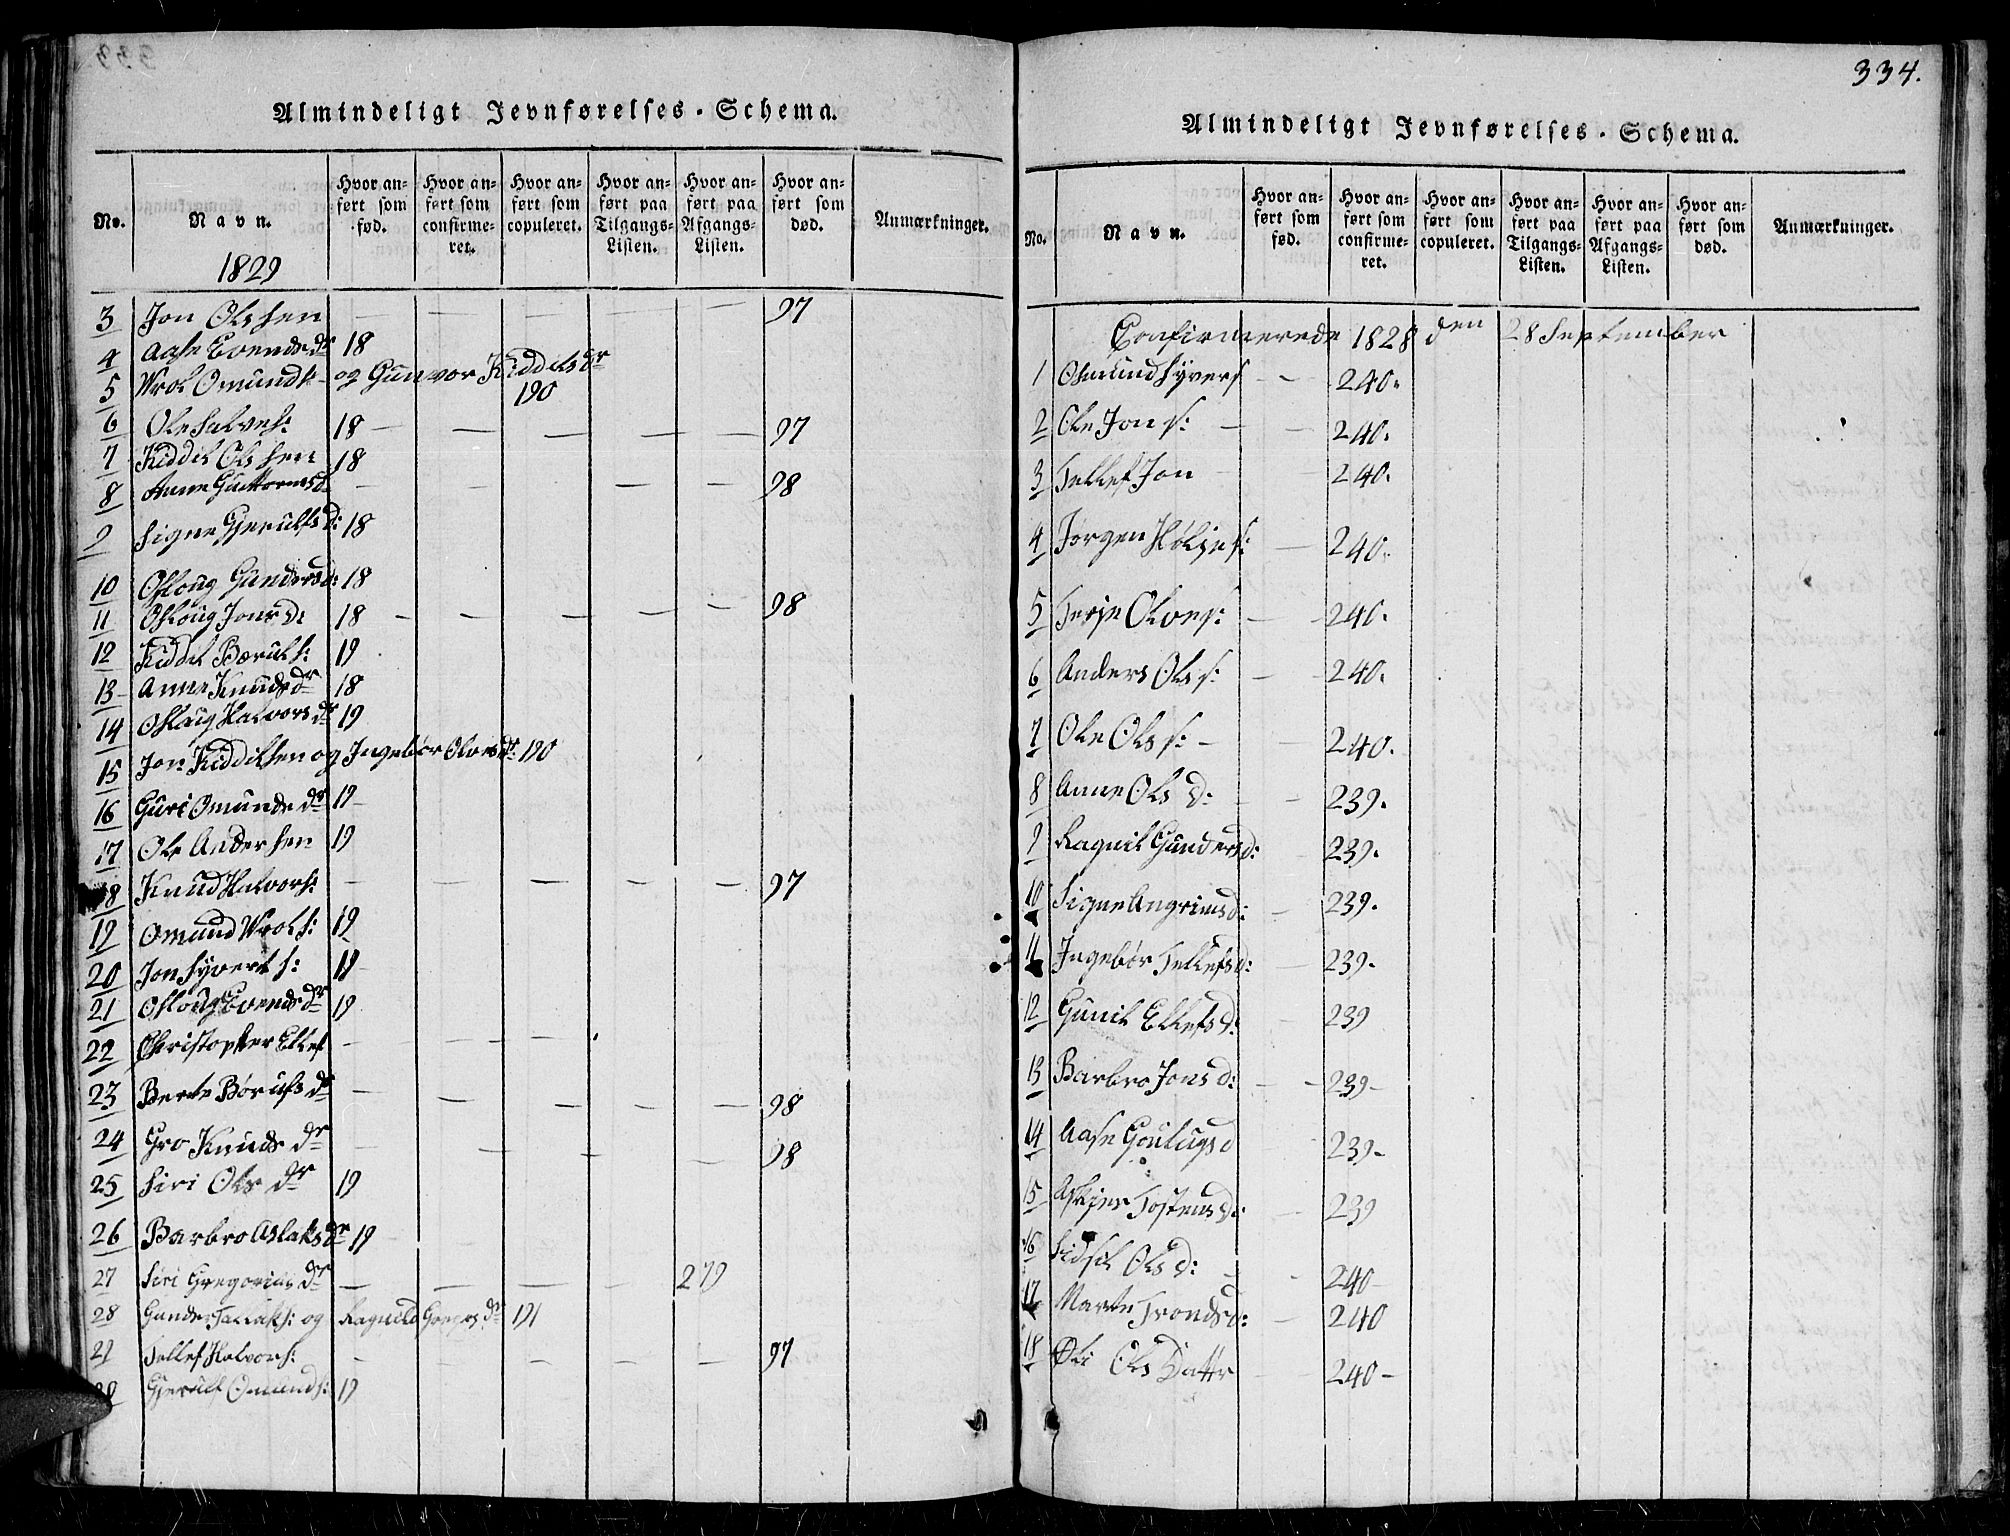 Almindeligt Jevnførelses-Schema.
No. Navn. Hvor anført som fød. Hvor anført som confirmeret. Hvor anført som copuleret. Hvor anført paa Tilgangs-Listen. Hvor anført paa Afgangs-Listen. Hvor anført som død. Anmærkninger.
1829
3 Jon Olssen — — — — — 97
4 Aase Evendsdr 18
5 Wrol Omunds og Gunvor Kiddelsdr 190
6 Ole Salves: 18 — — — — — 97
7 Kiddel Olssen 18
8 Anne Guttormsd — — — — — 98
9 Signe Gjerulfsd: 18
10 Osloug Gundersd: 18
11 Osloug Jonsd: 18 — — — — — 98
12 Kiddel Bæruls: 19
13 Anne Knudsdr 18
14 Oslaug Halvorsdr 19
15 Jon Kiddelsen og Ingebór Olvesdr. 190
16 Guri Omundsdr 19
17 Ole Andersen 19
18 Knud Halvors: — — — — — 97
19 Omund Wrols: 19
20 Jon Syverts: 19
21 Osloug Evendsdr 19
22 Christopher Ellef — — — —
23 Berte Bórufsdr — — — — — 98
24 Gro Knudsdr — — — — 98
25 Siri Olsdr 19
26 Barbro Aslaksdr 19
27 Siri Gregoriusdr — — — — 279
28 Gunder Tallaks: og Ragnild Gregersdr 191
29 Tellef Halvors: — — — — 97
Gjerulf Omunds: 19
334.
Almindeligt Jevnførelses-Schema.
No. Navn. Hvor anført som fød. Hvor anført som confirmeret. Hvor anført som copuleret. Hvor anført paa Tilgangs-Listen. Hvor anført paa Afgangs-Listen. Hvor anført som død. Anmærkninger.
Confirmerede 1828 den 28 September
1 Osmund Syvers — — 240.
2 Ole Jons: — — 240.
3 Tellef Jon — 240.
4 Jørgen Hóljes: — 240.
5 Terje Olves: — — 240.
6 Anders Ols: — — 240.
7 Ole Ols: — — 240.
8 Anne Olsd: — — 239.
9 Ragnil Gundersd: — 239.
10 Signe Angrimsd: — 239.
11 Ingebór Tellefsd: — 239.
12 Gunil Ellefsd: — 239
13 Barbro Jonsd: — — 239—
14 Aase Goulugsd — 239—
15 Askjer Tostensd: — 239
16 Sidsil Olsd: — — 240—
17 Marte Trondsd: — 240
18 Ols Dattr — 240—